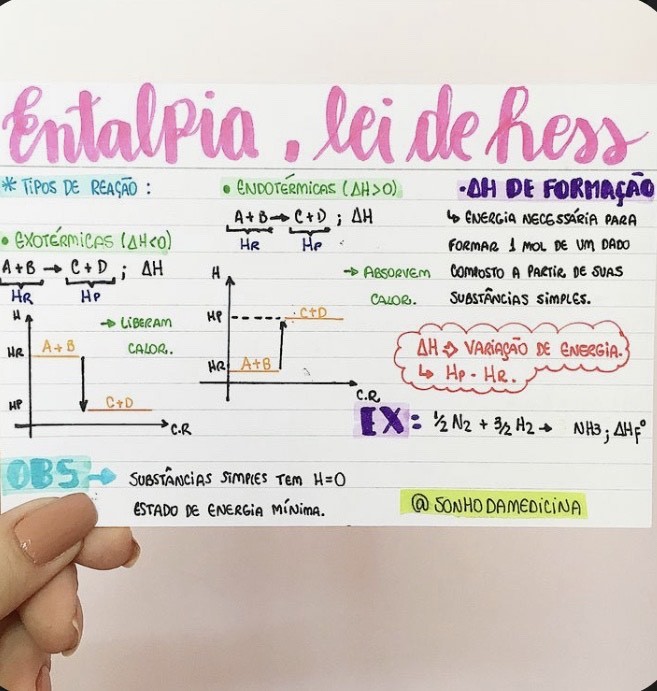 Entalpia. lei de hess
* TIPOS DE REAÇÃO:
• EXOTÉRMICAS (ΔH<0)
A+B → C+D ; ΔH
HR HP
H
→ LIBERAM
CALOR.
HR
A+B
HP
C+D
C.R
• ENDOTÉRMICAS (ΔH>0)
A+B → C+D ; ΔH
HR HP
H
→ ABSORVEM
CALOR.
HP
C+D
HR
A+B
C.R
• ΔH DE FORMAÇÃO
↳ ENERGIA NECESSÁRIA PARA
FORMAR 1 MOL DE UM DADO
COMPOSTO A PARTIR DE SUAS
SUBSTÂNCIAS SIMPLES.
ΔH → VARIAÇÃO DE ENERGIA.
↳ HP - HR.
EX: ½ N2 + 3/2 H2 → NH3 ; ΔHf°
OBS → SUBSTÂNCIAS SIMPLES TEM H=0
ESTADO DE ENERGIA MÍNIMA.
@SONHODAMEDICINA